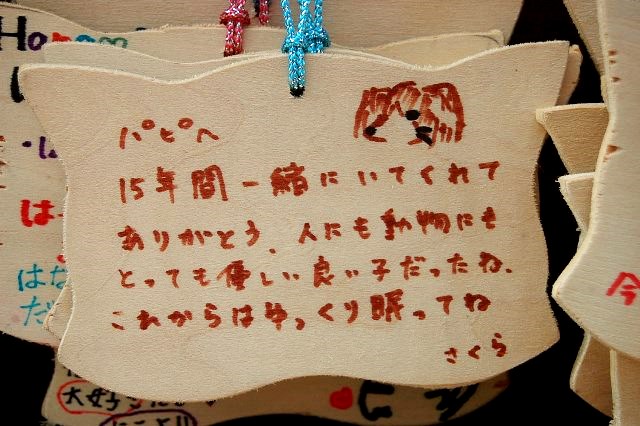 パピへ
15年間一緒にいてくれて
ありがとう、人にも動物にも
とっても優しい良い子だったね、
これからはゆっくり眠ってね
さくら
は
はな
だ
今